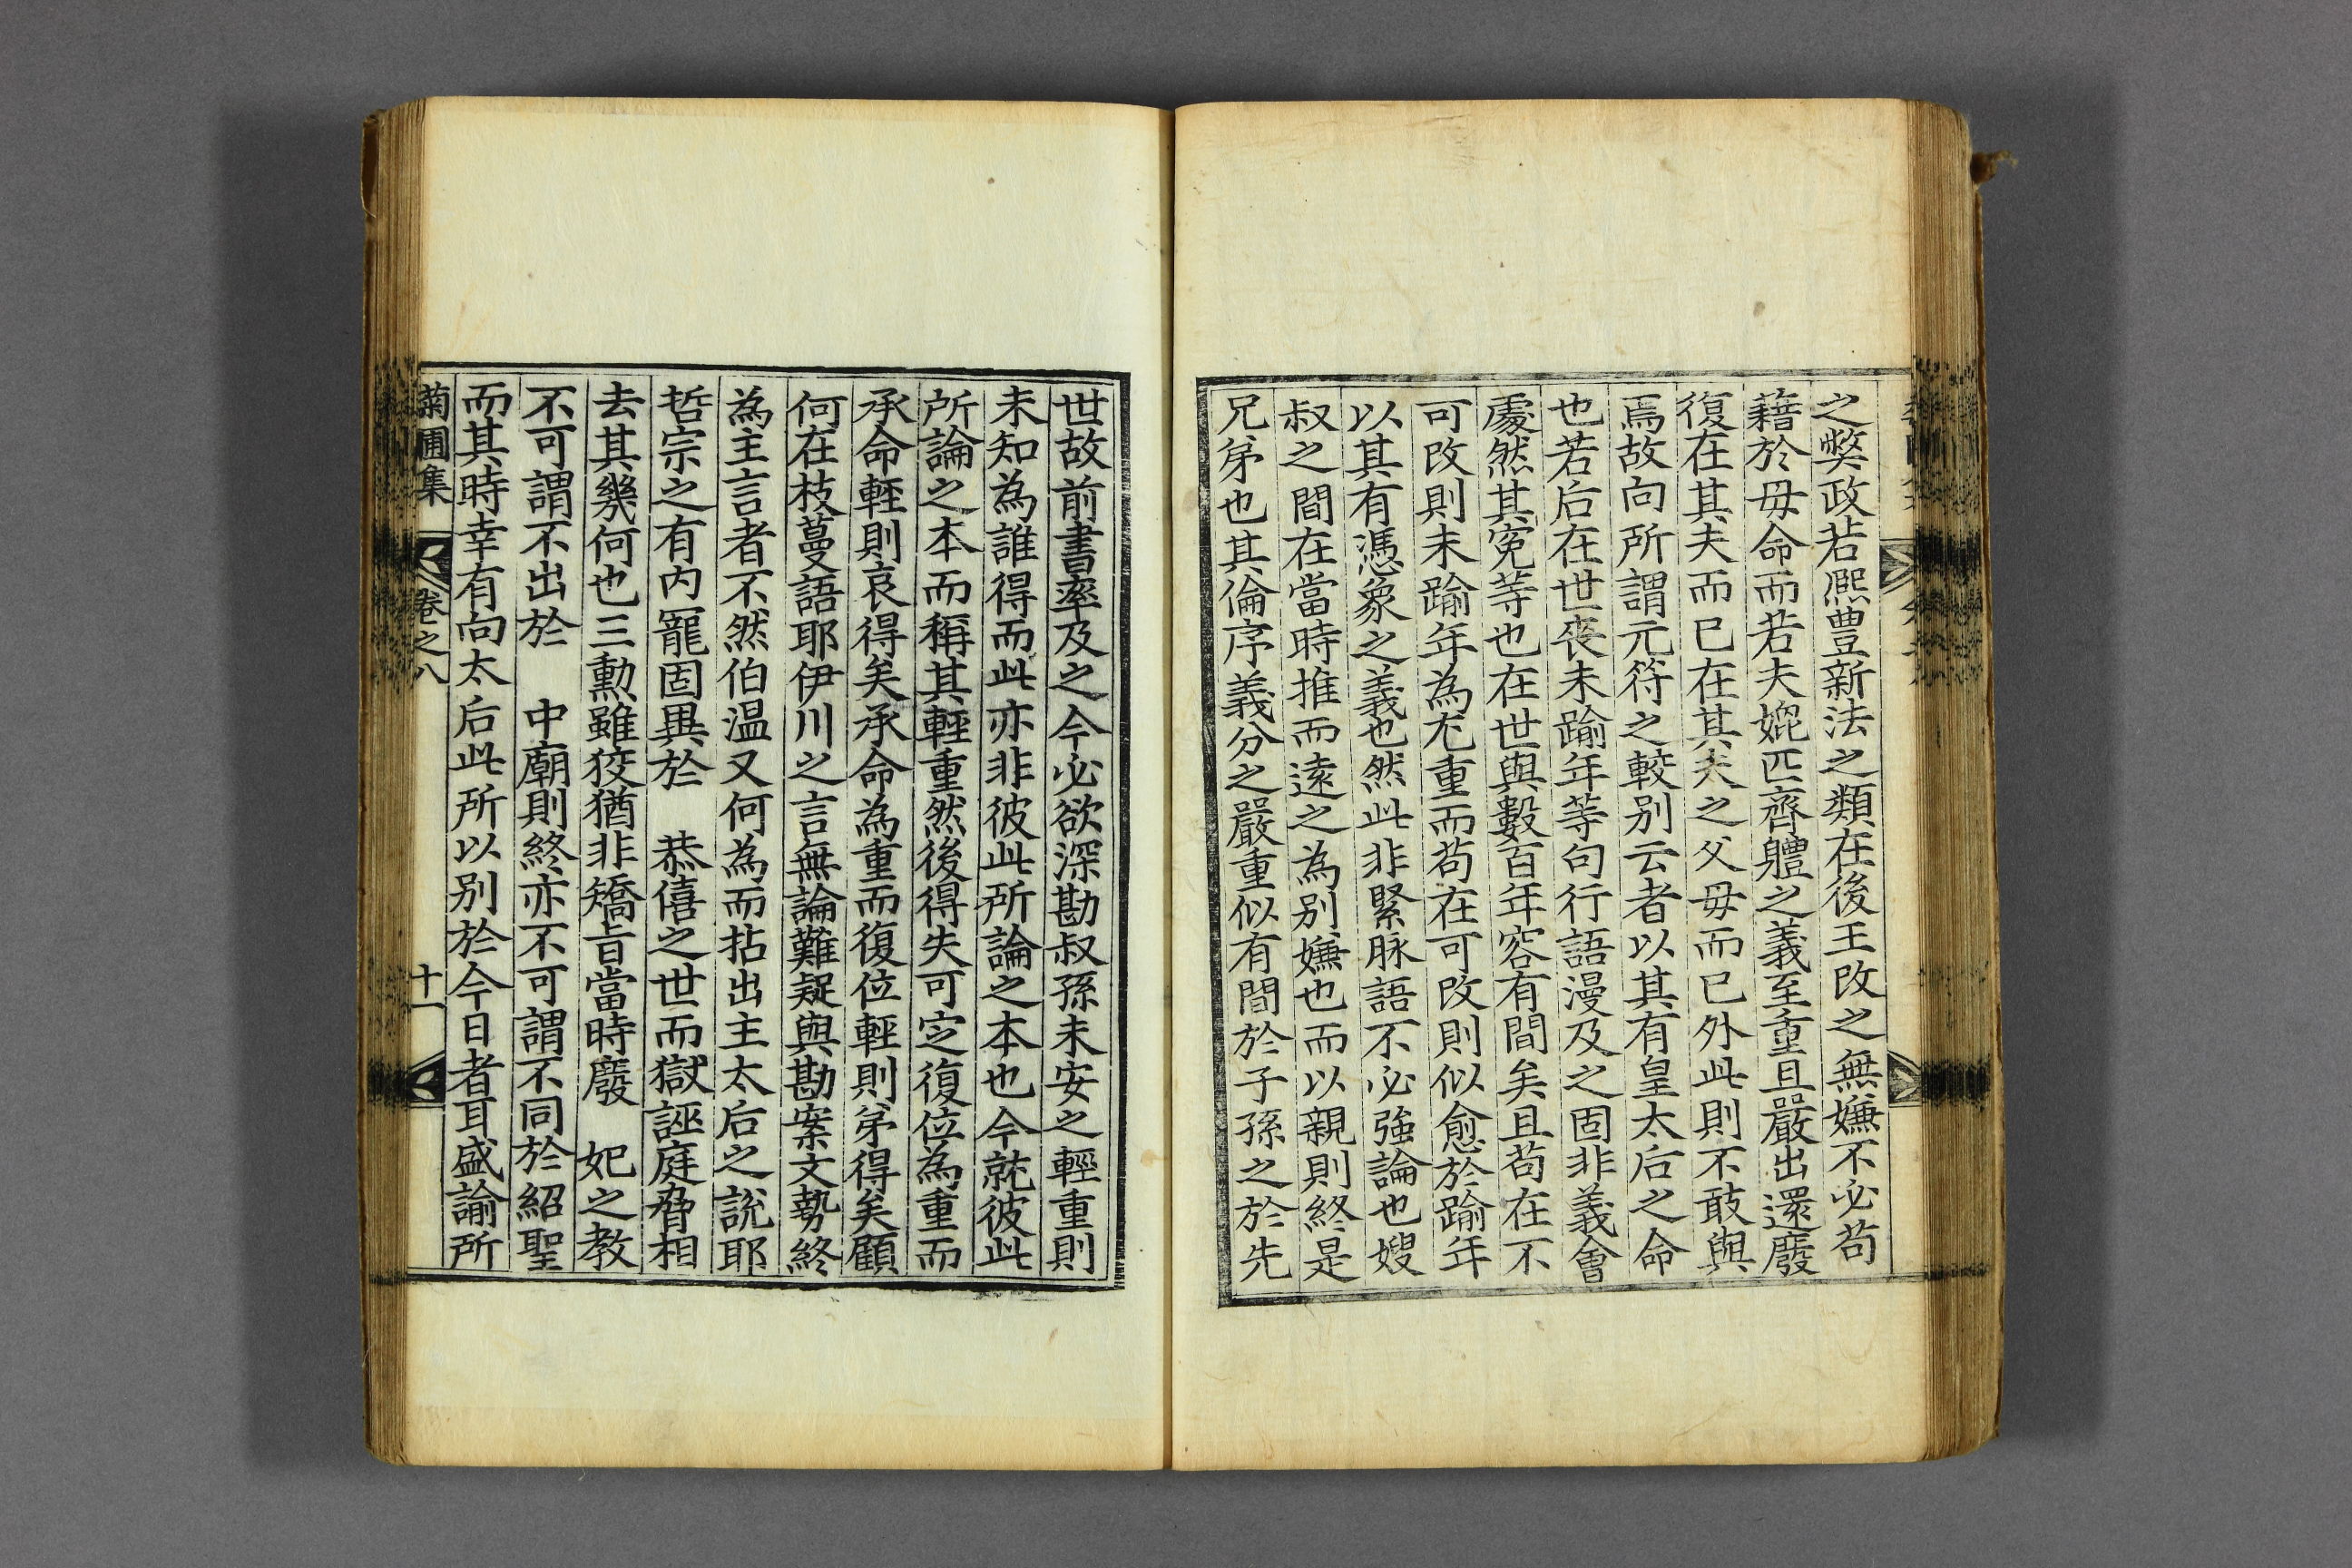 之弊政若熈豊新法之類在後王改之無嫌不必苟
藉於毋命而若夫媲匹齊軆之義至重且嚴出還廢
復在其夫而已在其夫之父毋而已外此則不敢與
焉故向所謂元符之較别云者以其有皇太后之命
也若后在世喪未踰年等句行語漫及之固非義會
處然其寃等也在世與數百年容有間矣且苟在不
可改則未踰年為尢重而苟在可改則似愈於踰年
以其有憑象之義也然此非緊脉語不必強論也嫂
叔之間在當時推而遠之為别嫌也而以親則終是
兄弟也其倫序義分之嚴重似有間於子孫之於先
世故前書率及之今必欲深勘叔孫未安之輕重則
未知為誰得而此亦非彼此所論之本也今就彼此
所論之本而稱其輕重然後得失可定復位為重而
承命輕則哀得矣承命為重而復位輕則弟得矣顧
何在枝蔓語耶伊川之言無論難疑與勘案文勢終
為主言者不然伯温又何為而拈出主太后之説耶
哲宗之有内寵固異於 恭僖之世而獄誣庭脅相
去其幾何也三勳雖狡猶非矯旨當時廢 妃之教
不可謂不出於 中廟則終亦不可謂不同於紹聖
而其時幸有向太后此所以别於今日者耳盛諭所
菊圃集 卷之八 十一